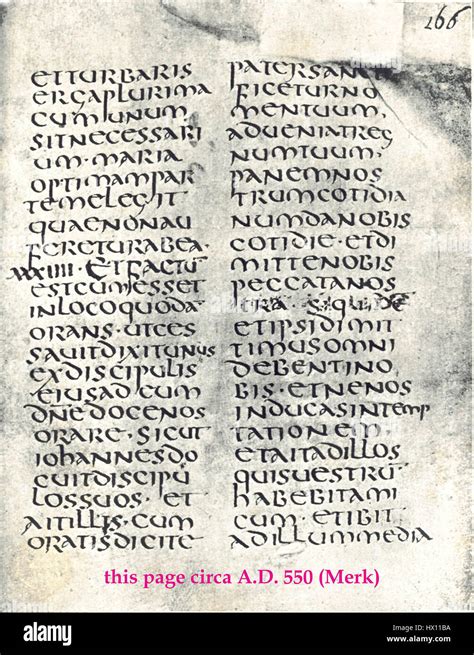 166
ETTURBARIS
ERGAPLURIMA
CUMUNUM
SITNECESSARI
UM·MARIA
OPTIMAMPAR
TEMELEGIT
QUAENONAU
FERETURABEA·
XXXIIII·ETFACTŪ
ESTCUMESSET
INLOCOQUODA
ORANS·UTCES
SAUITDIXITUNUS
EXDISCIPULIS
EIUSADEUM
DNEDOCENOS
ORARE·SICUT
IOHANNESDO
CUITDISCIPU
LOSSUOS·ET
AITILLIS·CUM
ORATISDICITE
PATERSAN
FICETURNO
MENTUUM,
ADUENIATREG
NUMTUUM,
PANEMNOS
TRUMCOTIDIA
NUMDANOBIS
COTIDIE·ETDI
MITTENOBIS
PECCATANOS
TRA·SIQUIDE
ETIPSIDIMIT
TIMUSOMNI
DEBENTINO
BIS·ETNENOS
INDUCASINTEMP
TATIONEM·
ETAITADILLOS
QUISUESTRŪ
HABEBITAMI
CUM·ETIBIT
ADILLUMMEDIA
this page circa A.D. 550 (Merk)
alamy stock photo
HX11BA
www.alamy.com